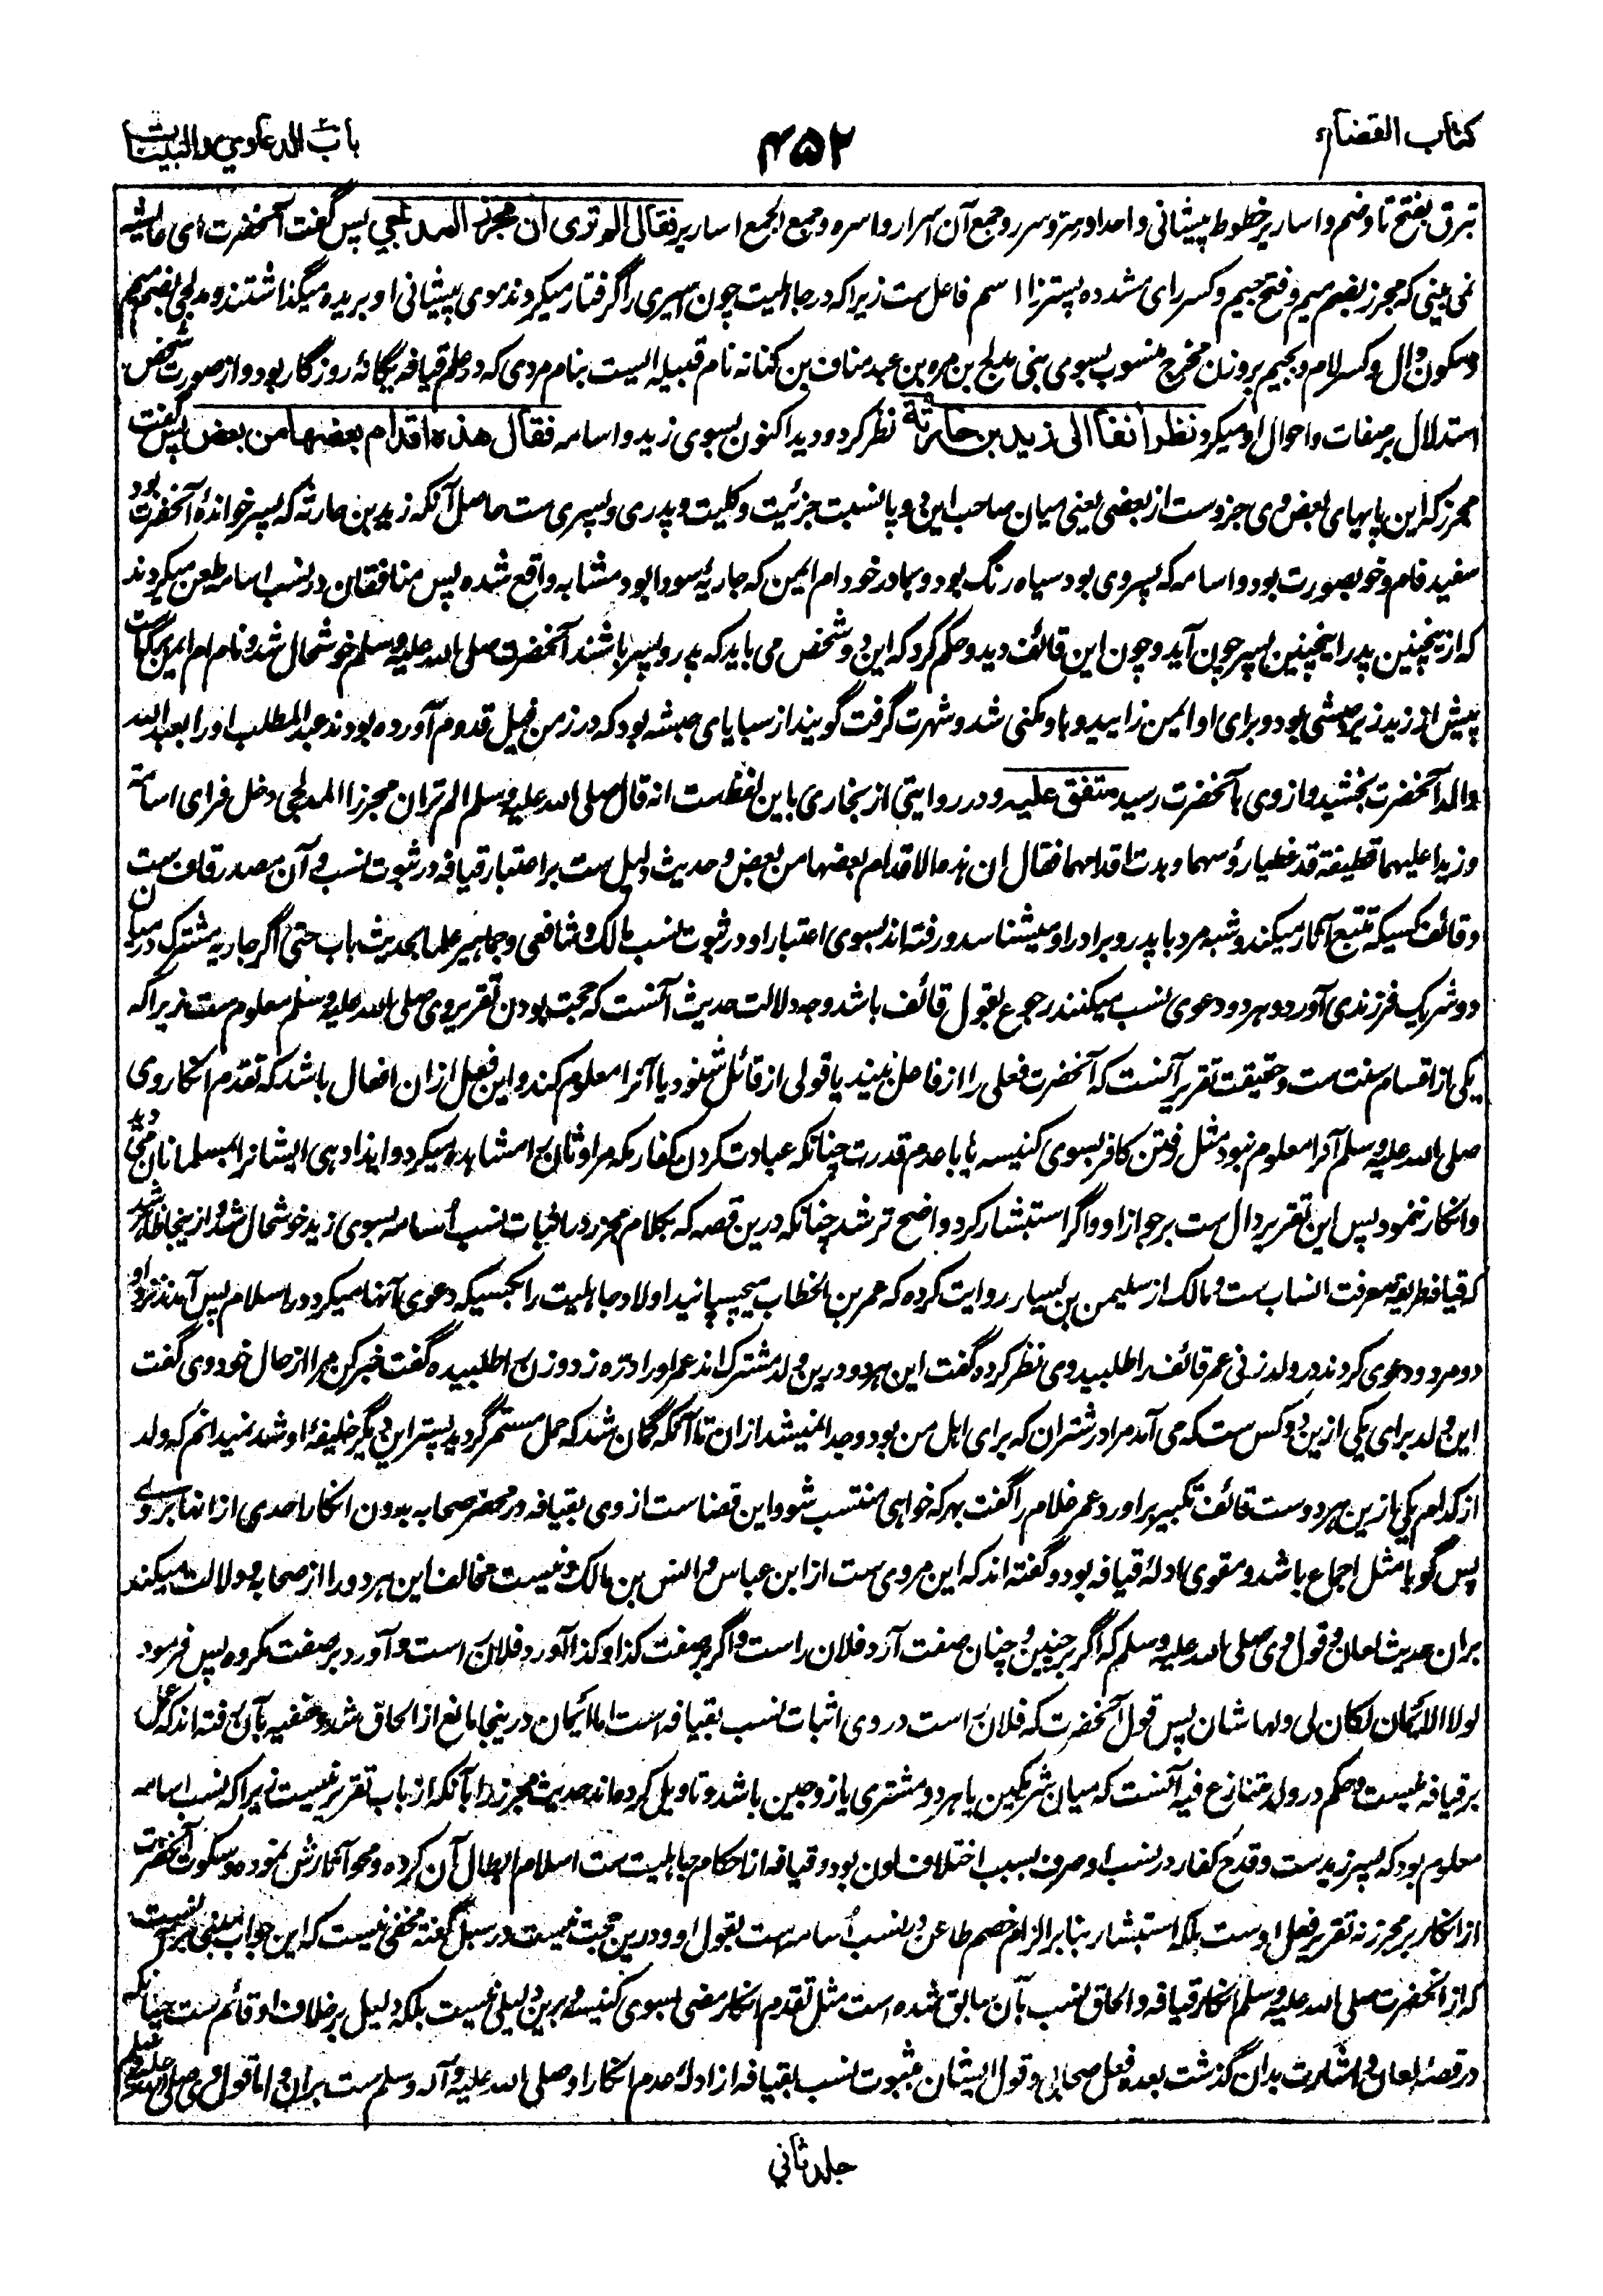 کتاب القضاء
۴۵۲
باب الدعاوي والبينات
تبرق بفتح تا وضم را و اساریر خطوط پیشانی واحد او سر و سرر و جمع آن اسرار و اسره و جمع الجمع اساریر فقال الم ترى ان مجزز المدلجي پس گفت آنحضرت ای عائشه
نمی بینی که مجزز بضم میم و فتح جیم و کسر زای مشدده پستر زا اسم فاعل ست زیرا که در جاهلیت چون اسیری را گرفتار میکردند موی پیشانی او بریده میگذاشتند و مدلجی بضم میم
و سکون دال و کسر لام و بجیم بر وزن مخرج منسوب بسوی بنی مدلج بن مره بن عبد مناف بن کنانه نام قبیله ایست بنام مردی که در علم قیافه یگانهٔ روزگار بود و از صورت شخص
استدلال بر صفات و احوال او میکرد نظر أنفا الى زيد بن حارثة نظر کرد و دید اکنون بسوی زید و اسامه فقال هذه اقدام بعضها من بعض پس گفت
مجزز که این پایهای بعض وی جزوست از بعضی یعنی میان صاحب این دو پا نسبت جزئیت و کلیت و پدری و پسری ست حاصل آنکه زید بن حارثه که پسر خواندهٔ آنحضرت بود
سفید فام و خوبصورت بود و اسامه که پسر وی بود سیاه رنگ بود و بمادر خود ام ایمن که جاریهٔ سودا بود مشابه واقع شده پس منافقان در نسب اسامه طعن میکردند
که از ینچنین پدر اینچنین پسر چون آید و چون این قائف دید و حکم کرد که این دو شخص می باید که پدر و پسر باشند آنحضرت صلی الله علیه وسلم خوشحال شد و نام ام ایمن برکة است
پیش از زید زیر حبشی بود و برای او ایمن زایید و باو مکنی شد و شهرت گرفت گویند از سبایای حبشه بود که در زمن فیل قدوم آورده بودند عبد المطلب او را بعبد الله
والد آنحضرت بخشید و از وی بآنحضرت رسید متفق علیه و در روایتی از بخاری باین لفظ ست انه قال صلی الله علیه وسلم الم تر ان مجززا المدلجی دخل فرای اسامة
و زیدا علیهما قطیفة قد غطیا رؤسهما و بدت اقدامهما فقال ان هذه الاقدام بعضها من بعض و حدیث دلیل ست بر اعتبار قیافه در ثبوت نسب و آن مصدر قاف ست
و قائف کسیکه تتبع آثار میکند و شبه مرد با پدر و برادر او میشناسد و رفته اند بسوی اعتبار او در ثبوت نسب مالک و شافعی و جماهیر علما بحدیث باب حتی اگر جاریه مشترک در میان
دو شریک فرزندی آورد و هر دو دعوی نسب میکنند رجوع بقول قائف باشد و وجه دلالت حدیث آنست که حجت بودن تقریر وی صلی الله علیه وسلم معلوم ست زیرا که
یکی از اقسام سنت ست و حقیقت تقریر آنست که آنحضرت فعلی را از فاعل بیند یا قولی از قائل شنود یا آنرا معلوم کند و این فعل از ان افعال باشد که تقدم انکار وی
صلی الله علیه وسلم آنرا معلوم نبود مثل رفتن کافر بسوی کنیسه یا با عدم قدرت چنانکه عبادت کردن کفار مکه مر اوثان را مشاهده میکرد و ایذادهی ایشانرا بمسلمانان میدید
و انکار ننمود پس این تقریر دال ست بر جواز او و اگر استبشار کرد واضح تر شد چنانکه درین قصه که بکلام مجزز در اثبات نسب أسامه بسوی زید خوشحال شد و از ینجا ظاهر شد
که قیافه طریقهٔ معرفت انساب ست و مالک از سلیمن بن یسار روایت کرده که عمر بن الخطاب میچسپانید اولاد جاهلیت را بکسیکه دعوی آنها میکرد در اسلام پس آمدند نزد او
دو مرد و دعوی کردند در ولد زنی عمر قائف را طلبید وی نظر کرده گفت این هر دو درین ولد مشترک اند عمر او را دره زد و زن را طلبیده گفت خبر کن مرا از حال خود وی گفت
این ولد برای یکی ازین دو کس ست که می آمد مرا در شتران که برای اهل من بود و جدا نمیشد از ان تا آنکه گمان شد که حمل مستمر گردید پستر این دیگر خلیفهٔ او شد نمیدانم که ولد
از کدام یکی ازین هر دو ست قائف تکبیر برآورد و عمر غلام را گفت بهر که خواهی منتسب شو و این قضاست از وی بقیافه در محضر صحابه بدون انکار احدی از انها بر وی
پس گویا مثل اجماع باشد و مقوی ادلهٔ قیافه بود و گفته اند که این مروی ست از ابن عباس و انس بن مالک و نیست مخالف این هر دو را از صحابه و دلالت میکند
بران حدیث لعان و قول وی صلی الله علیه وسلم که اگر بر چنین و چنان صفت آرد فلان راست و اگر بصفت کذا و کذا آورد فلان راست و آورد بر صفت مکروه پس فرمود
لولا الایمان لکان لی و لها شان پس قول آنحضرت که فلان راست در وی اثبات نسب بقیافه است اما ایمان درینجا مانع از الحاق شد و حنفیه بآن رفته اند که عمل
بر قیافه نیست و حکم در ولد متنازع فیه آنست که میان شریکین یا هر دو مشتری یا زوجین باشد و تاویل کرده اند حدیث مجزز را بآنکه از باب تقریر نیست زیرا که نسب اسامه
معلوم بود که پسر زیدست و قدح کفار در نسب او صرف بسبب اختلاف لون بود و قیافه از احکام جاهلیت ست اسلام ابطال آن کرده و محو آثارش نموده و سکوت آنحضرت
از انکار بر مجزز نه تقریر فعل اوست بلکه استبشار بنابر الزام خصم طاعن در نسب أسامه ست بقول او و درین حجت نیست در سبل گفته مخفی نیست که این جواب مبنی بر آن ست
که از آنحضرت صلی الله علیه وسلم انکار قیافه و الحاق نسب بآن سابق شده است مثل تقدم انکار مضی بسوی کنیسه و برین دلیلی نیست بلکه دلیل بر خلاف او قائم ست چنانکه
در قصهٔ لعان و اشارت بدان گذشت بعده فعل صحابی و قول ایشان بثبوت نسب بقیافه از ادلهٔ عدم انکار او صلی الله علیه وآله وسلم ست بران و اما قول وی صلی الله علیه وسلم
جلد ثاني